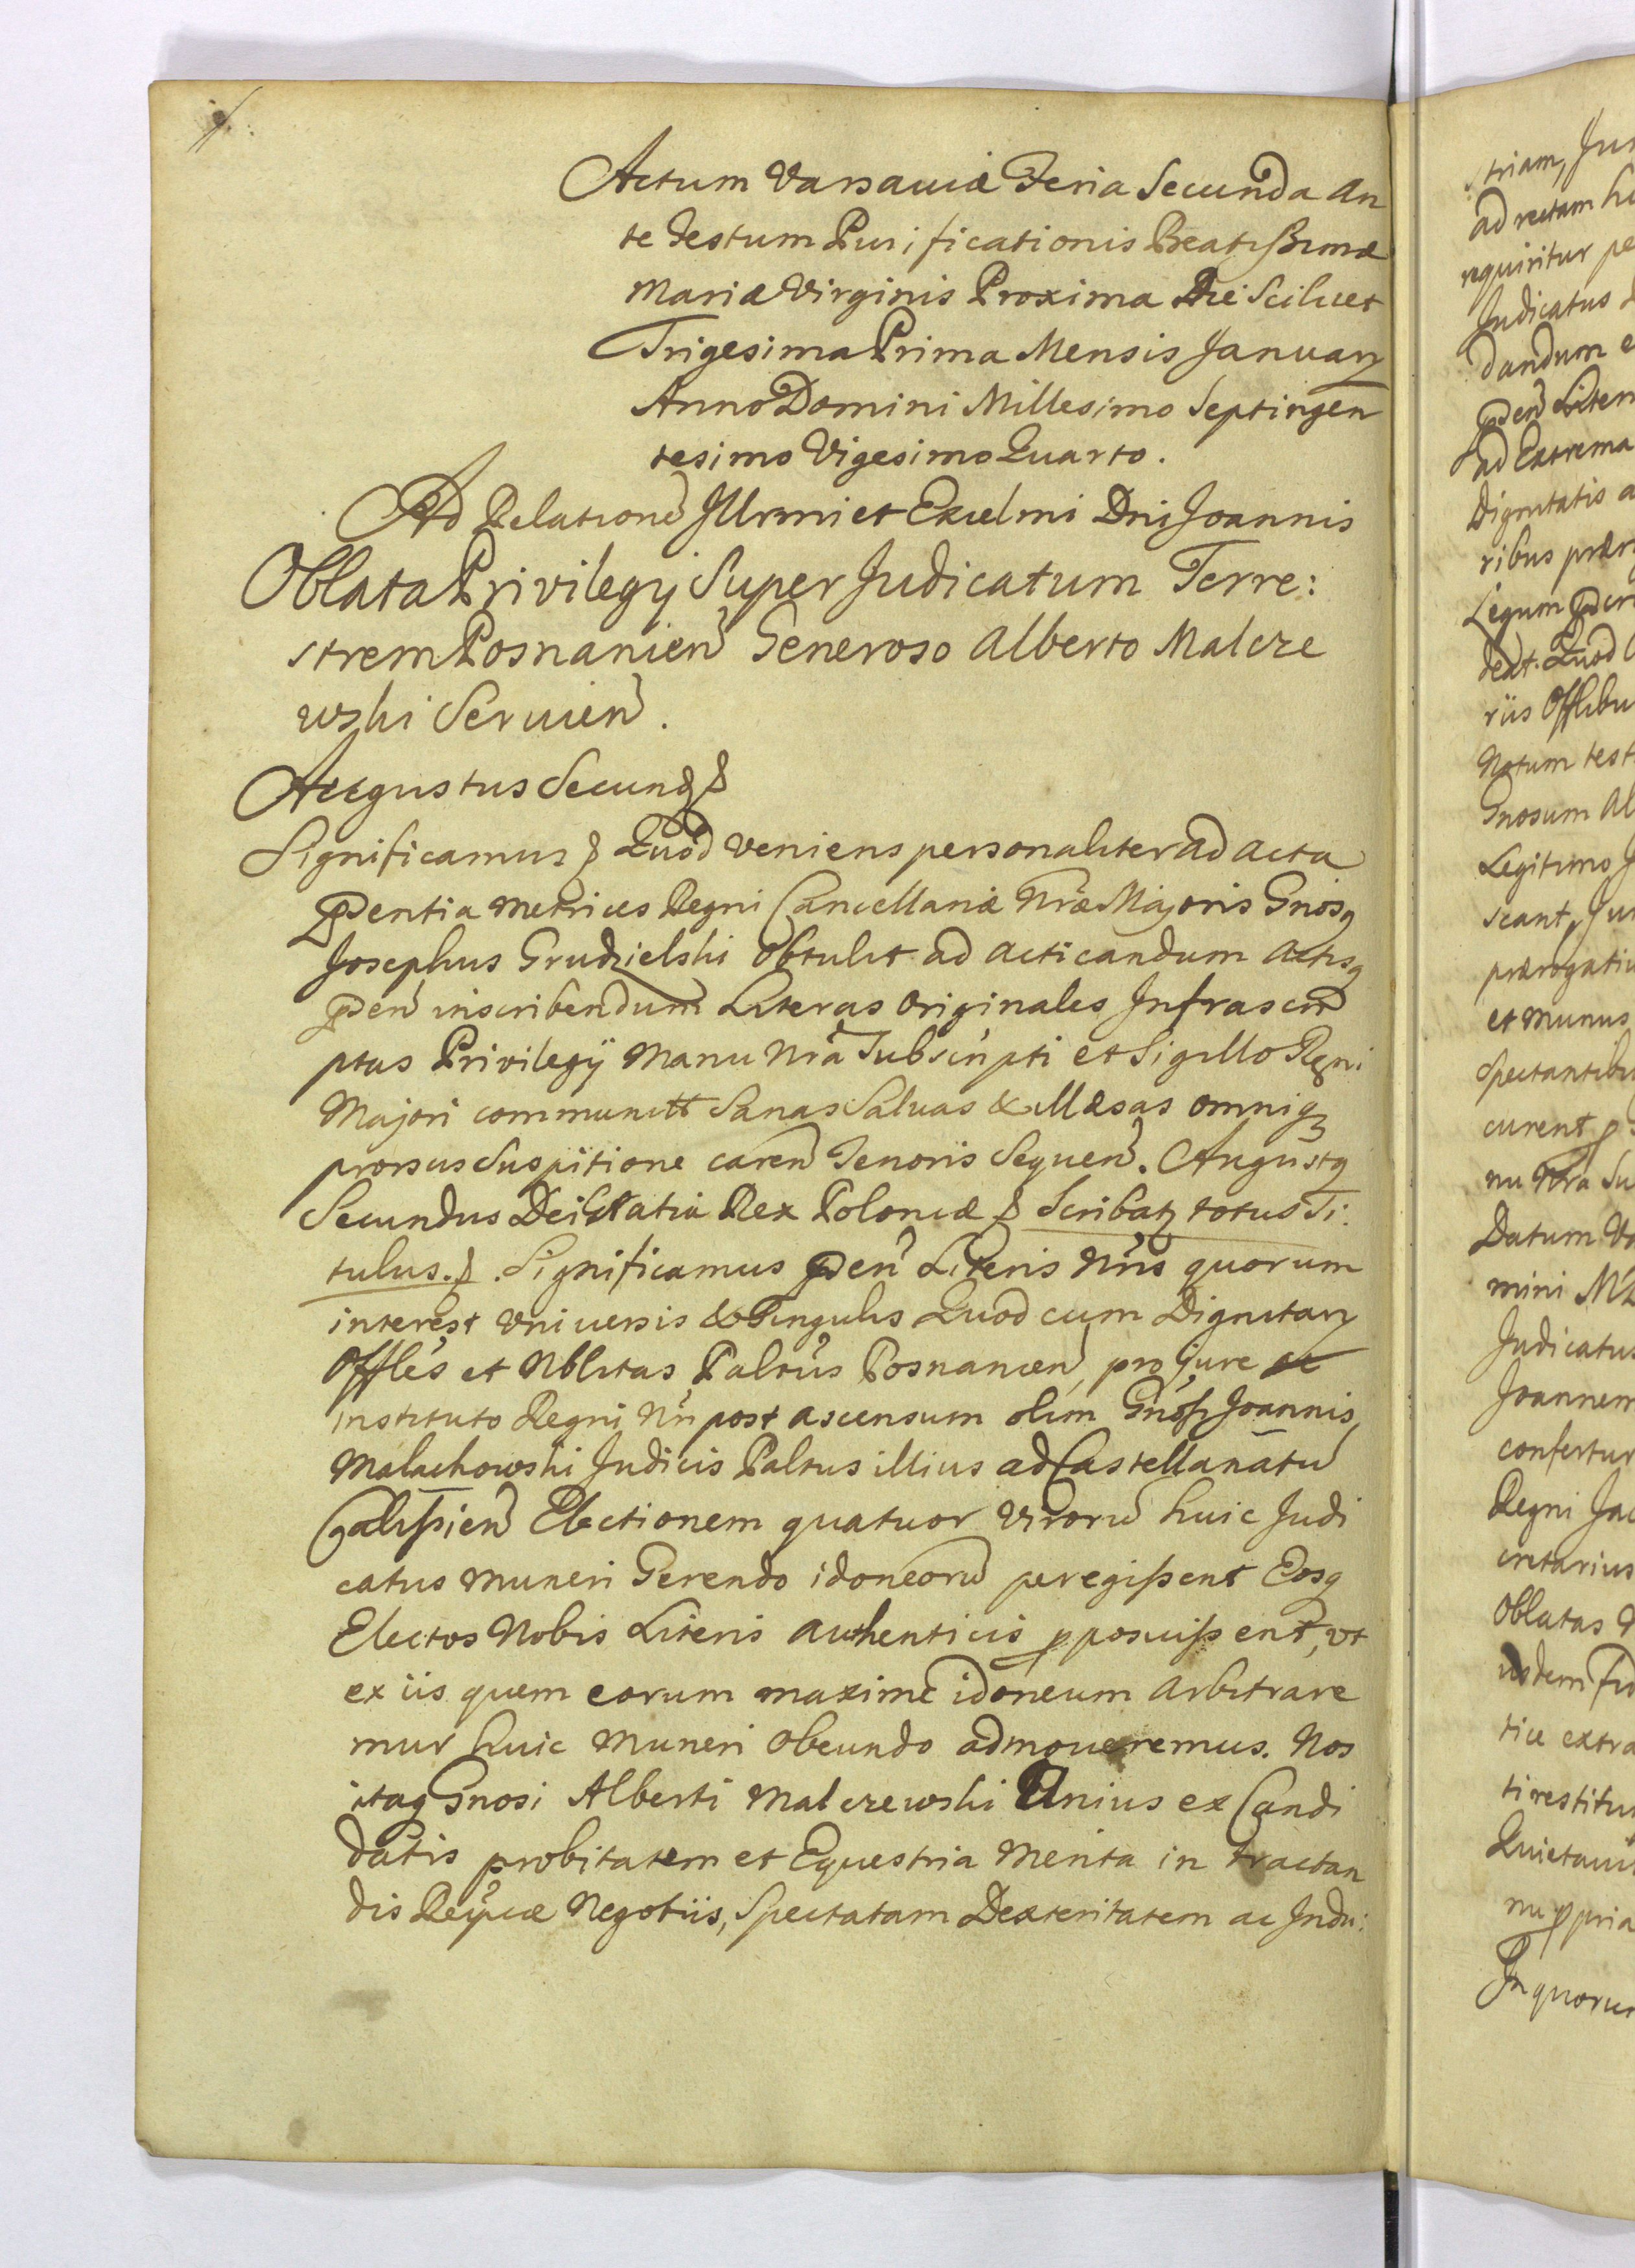 Actum Varsaviæ Feria Secunda an
te Festum Purificationis Beatissimæ
Mariæ Virginis Proxima Die Scilicet
Trigesima Prima Mensis Januarÿ
Anno Domini Millesimo Septingen
tesimo Vigesimo Quarto.
Ad Relationē Jllrmi et Excelmi Dni Joannis
Oblata Privilegÿ Super Judicatum Terre:
strem Posnanien̄ Generoso Alberto Malcze
wski Servien̄.
Augustus Secundꝫ &
Significamus & Quod veniens personaliter ad acta
pn̄tia Metrices Regni Cancellariæ Nr̄æ Majoris Gnosꝫ
Josephus Grudzielski obtulit ad acticandum actisꝫ
pn̄ inscribendum Literas Originales Infrascri
ptas Privilegÿ Manu Nr̄a Subscripti et Sigillo Regni
Majori communitt Sanas Salvas & illæsas omniqꝫ
prorsus Suspitione caren̄ Tenoris Sequen̄. Augustꝫ
Secundus Dei Gratia Rex Poloniæ & Scribatꝫ totus Ti:
tulus. &. Significamus pn̄ Literis Nr̄is quorum
interest Universis & Singulis Quod cum Dignitarÿ
Offles et Nblitas Paltus Posnanien̄, pro jure et
instituto Regni Nr̄i post ascensum olim Gnosi Joannis
Malachowski Judicis Paltus illius ad Castellanatū
Calissien̄ Electionem quatuor Virorū huic Judi
catus muneri Gerendo idoneorū peregissent Eosq
Electos Nobis Literis authenticis pposuissent, ut
ex iis quem eorum maxime idoneum arbitrare
mur huic Muneri obeundo admoveremus. Nos
itaq Gnosi Alberti Malczewski Unius ex Candi
datis probitatem et Equestria Merita in tractan
dis Reipcæ Negotiis, Spectatam Dexteritatem ac Indu:
striam, Jur
ad rectam
requiritur pe
Judicatus
dandum e
ad Extrema
Dignitatis a
ribus prær
Legum
deat. Quod
riis Offlibu
Notum test
Gnosum Al
Legitimo J
scant, Ju
prærogativ
et munus
Spectantibu
curent
nu Nr̄a Su
Datum Va
mini
Judicatus
Joannem
confertur
Regni
cretarius
Oblatas
tice extra
ti restitu
Quietavit
nu ppria
In quorum